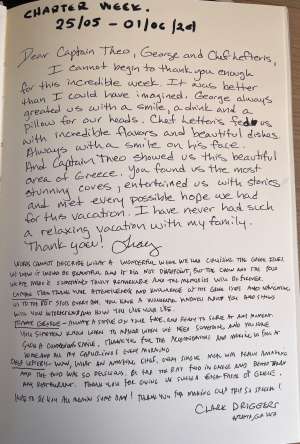 CHARTER WEEK.
25/05 - 01/06/
Dear Captain Theo, George and Chef Lefteris,
I cannot begin to thank you enough
for this incredible week. It was better
than I could have imagined. George always
greeted us with a smile, a drink and a
pillow for our heads. Chef Lefteris fed us
with incredible flavors and beautiful dishes.
Always with a smile on his face.
And Captain Theo showed us this beautiful
area of Greece. You found us the most
stunning coves, entertained us with stories
and met every possible hope we had
for this vacation. I have never had such
a relaxing vacation with my family.
Thank you!
WORDS CANNOT DESCRIBE WHAT A WONDERFUL WEEK WE HAD CRUISING THE GREEK ISLES.
WE KNEW IT WOULD BE BEAUTIFUL AND IT DID NOT DISAPPOINT, BUT THE CREW AND THE FOOD
WE ATE MADE IT SOMETHING TRULY REMARKABLE AND THE MEMORIES WILL BE FOREVER.
CAPTAIN THEO - THANK YOUR ATTENTIVENESS AND KNOWLEDGE OF THE GREEK ISLES AND
US TO THE BEST STOPS EVERY DAY. YOU HAVE A WONDERFUL MANNER ABOUT YOU AND
WITH YOUR AND HOW YOU LIVE YOUR LIFE.
GEORGE - ALWAYS A SMILE ON YOUR FACE, AND READY TO CATER AT ANY MOMENT.
YOU SIMPLY KNEW WHEN TO APPEAR WHEN WE NEED SOMETHING, AND YOU HAVE
SUCH A SMILE. THANK YOU FOR THE AND MAKING US FEEL AT
HOME AND ALL MY CAPPUCINOS EVERY MORNING
CHEF LEFTERIS - WOW, WHAT AN AMAZING CHEF, EVERY SINGLE MEAL WAS REALLY AMAZING
AND THE FOOD WAS SO DELICIOUS. BY FAR THE BEST FOOD IN GREECE AND BETTER THAN
ANY RESTAURANT. THANK YOU FOR GIVING US SUCH A GREAT TASTE OF GREECE.
HOPE TO BE WITH ALL AGAIN SOME DAY! THANK YOU FOR MAKING OUR TRIP SO SPECIAL!
CLARK DRIGGERS
ATLANTA, GA USA